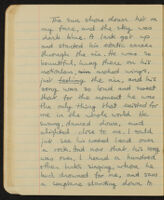 The sun shone down hot on
my face, and the sky was
dark blue. A lark got up
and started his
through the air. He was so
beautiful, hung there on his
motionless, wings,
just feeling the air, and his
song was so loud and sweet
that for the moment he was
the only thing that existed for
me in the whole world. He
swung, danced down, and
alighted close to me. I could
just see his head and
a rock, but now that his song
was over, I heard a hundred
other larks singing, whom he
had drowned for me, and saw
a longtone standing down to